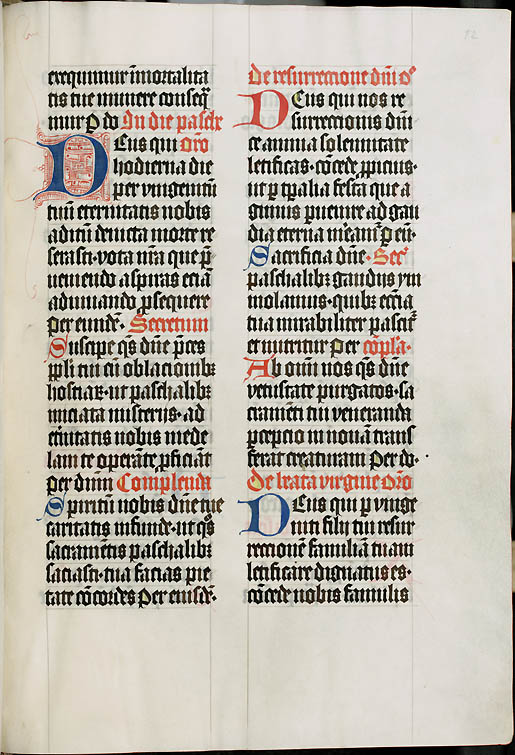 12
exequimur īmortalita
tis tue munere conseq̄
mur ꝑ do In die pasche
DEus qui oro
hodierna die
per vnigenitū
tuū eternitatis nobis
aditū deuicta morte re
serasti · vota nr̄a que p̄
ueniendo aspiras etiā
adiuuando ꝓsequere
per eundē · Secretum
Suscipe qs dn̄e p̄ces
ppl̄i tui cū oblacionibꝫ
hostiaꝝ · ut paschalibꝫ
iniciata misterijs · ad
et̄nitatis nobis mede
lam te operāte ꝓficiāt
per dnm Complenda
Spiritum nobis dn̄e tue
caritatis infunde · ut qs
sacramētis paschalibꝫ
saciasti · tua facias pie
tate cōcordes Per eiusdē ·
de resurrectione dn̄i o
DEus qui nos re
surrectionis dn̄i
ce annua solemnitate
letificas · cōcede ꝓpicius ·
ut ꝑ tꝑalia festa que a
gimus ꝑuenire ad gau
dia eterna meam̄ ꝑ eū ·
Sacrificia dn̄e · Sec
paschalibꝫ gaudijs ym
molamus · quibꝫ ecc̄ia
tua mirabiliter pascit
et nutritur per cōpl̄a ·
Ab om̄i nos qs dn̄e
vetustate purgatos · sa
cramēti tui veneranda
ꝑcepcio in nouā trans
ferat creaturam per do ·
De beata virgine oro
DEus qui ꝑ vnige
niti filij tui resur
rectionē familiā tuam
letificare dignatus es ·
cōcede nobis famulis